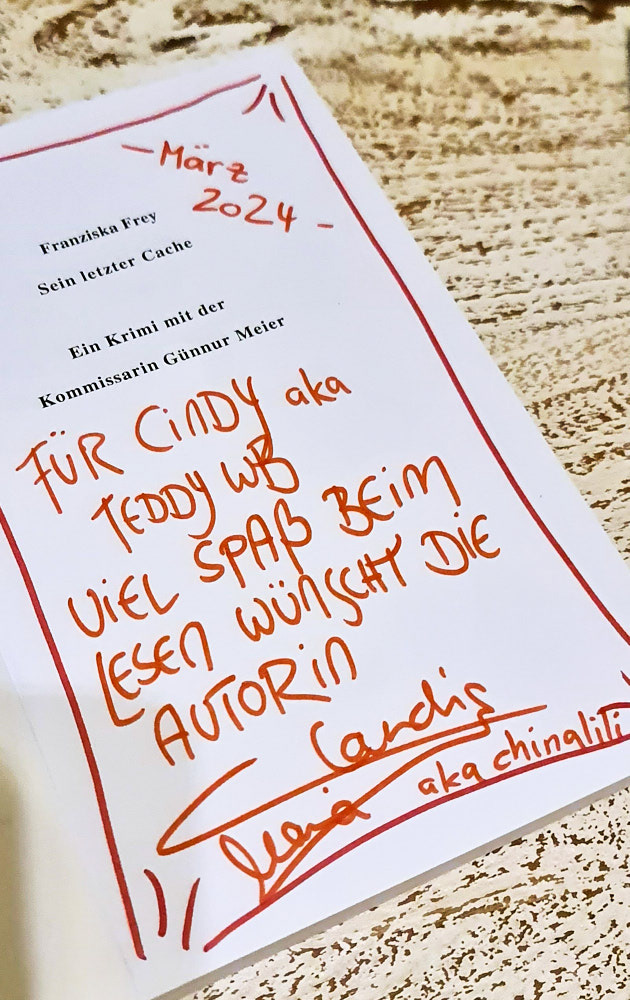 - März
2024 -
Franziska Frey
Sein letzter Cache
Ein Krimi mit der
Kommissarin Günnur Meier
FÜR CiNDY aka
TEDDY WB
ViEL SPAß BEiM
LESEN WÜNSCHT DiE
AUTORiN
aka chinalili